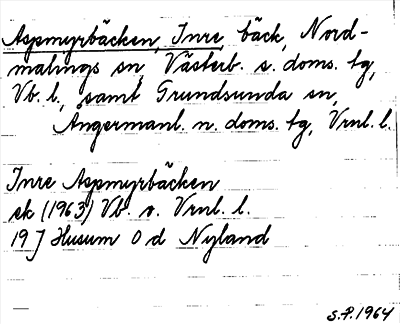 Aspmyrbäcken, Inre, bäck, Nord-
malings sn, Västerb. s. doms. tg,
Vb. l., samt Grundsunda sn,
Ångermanl. n. doms. tg, Vrnl. l.
Inre Aspmyrbäcken
ek (1963) Vb. o. Vrnl. l.
19 J Husum O d Nyland
S.F. 1964